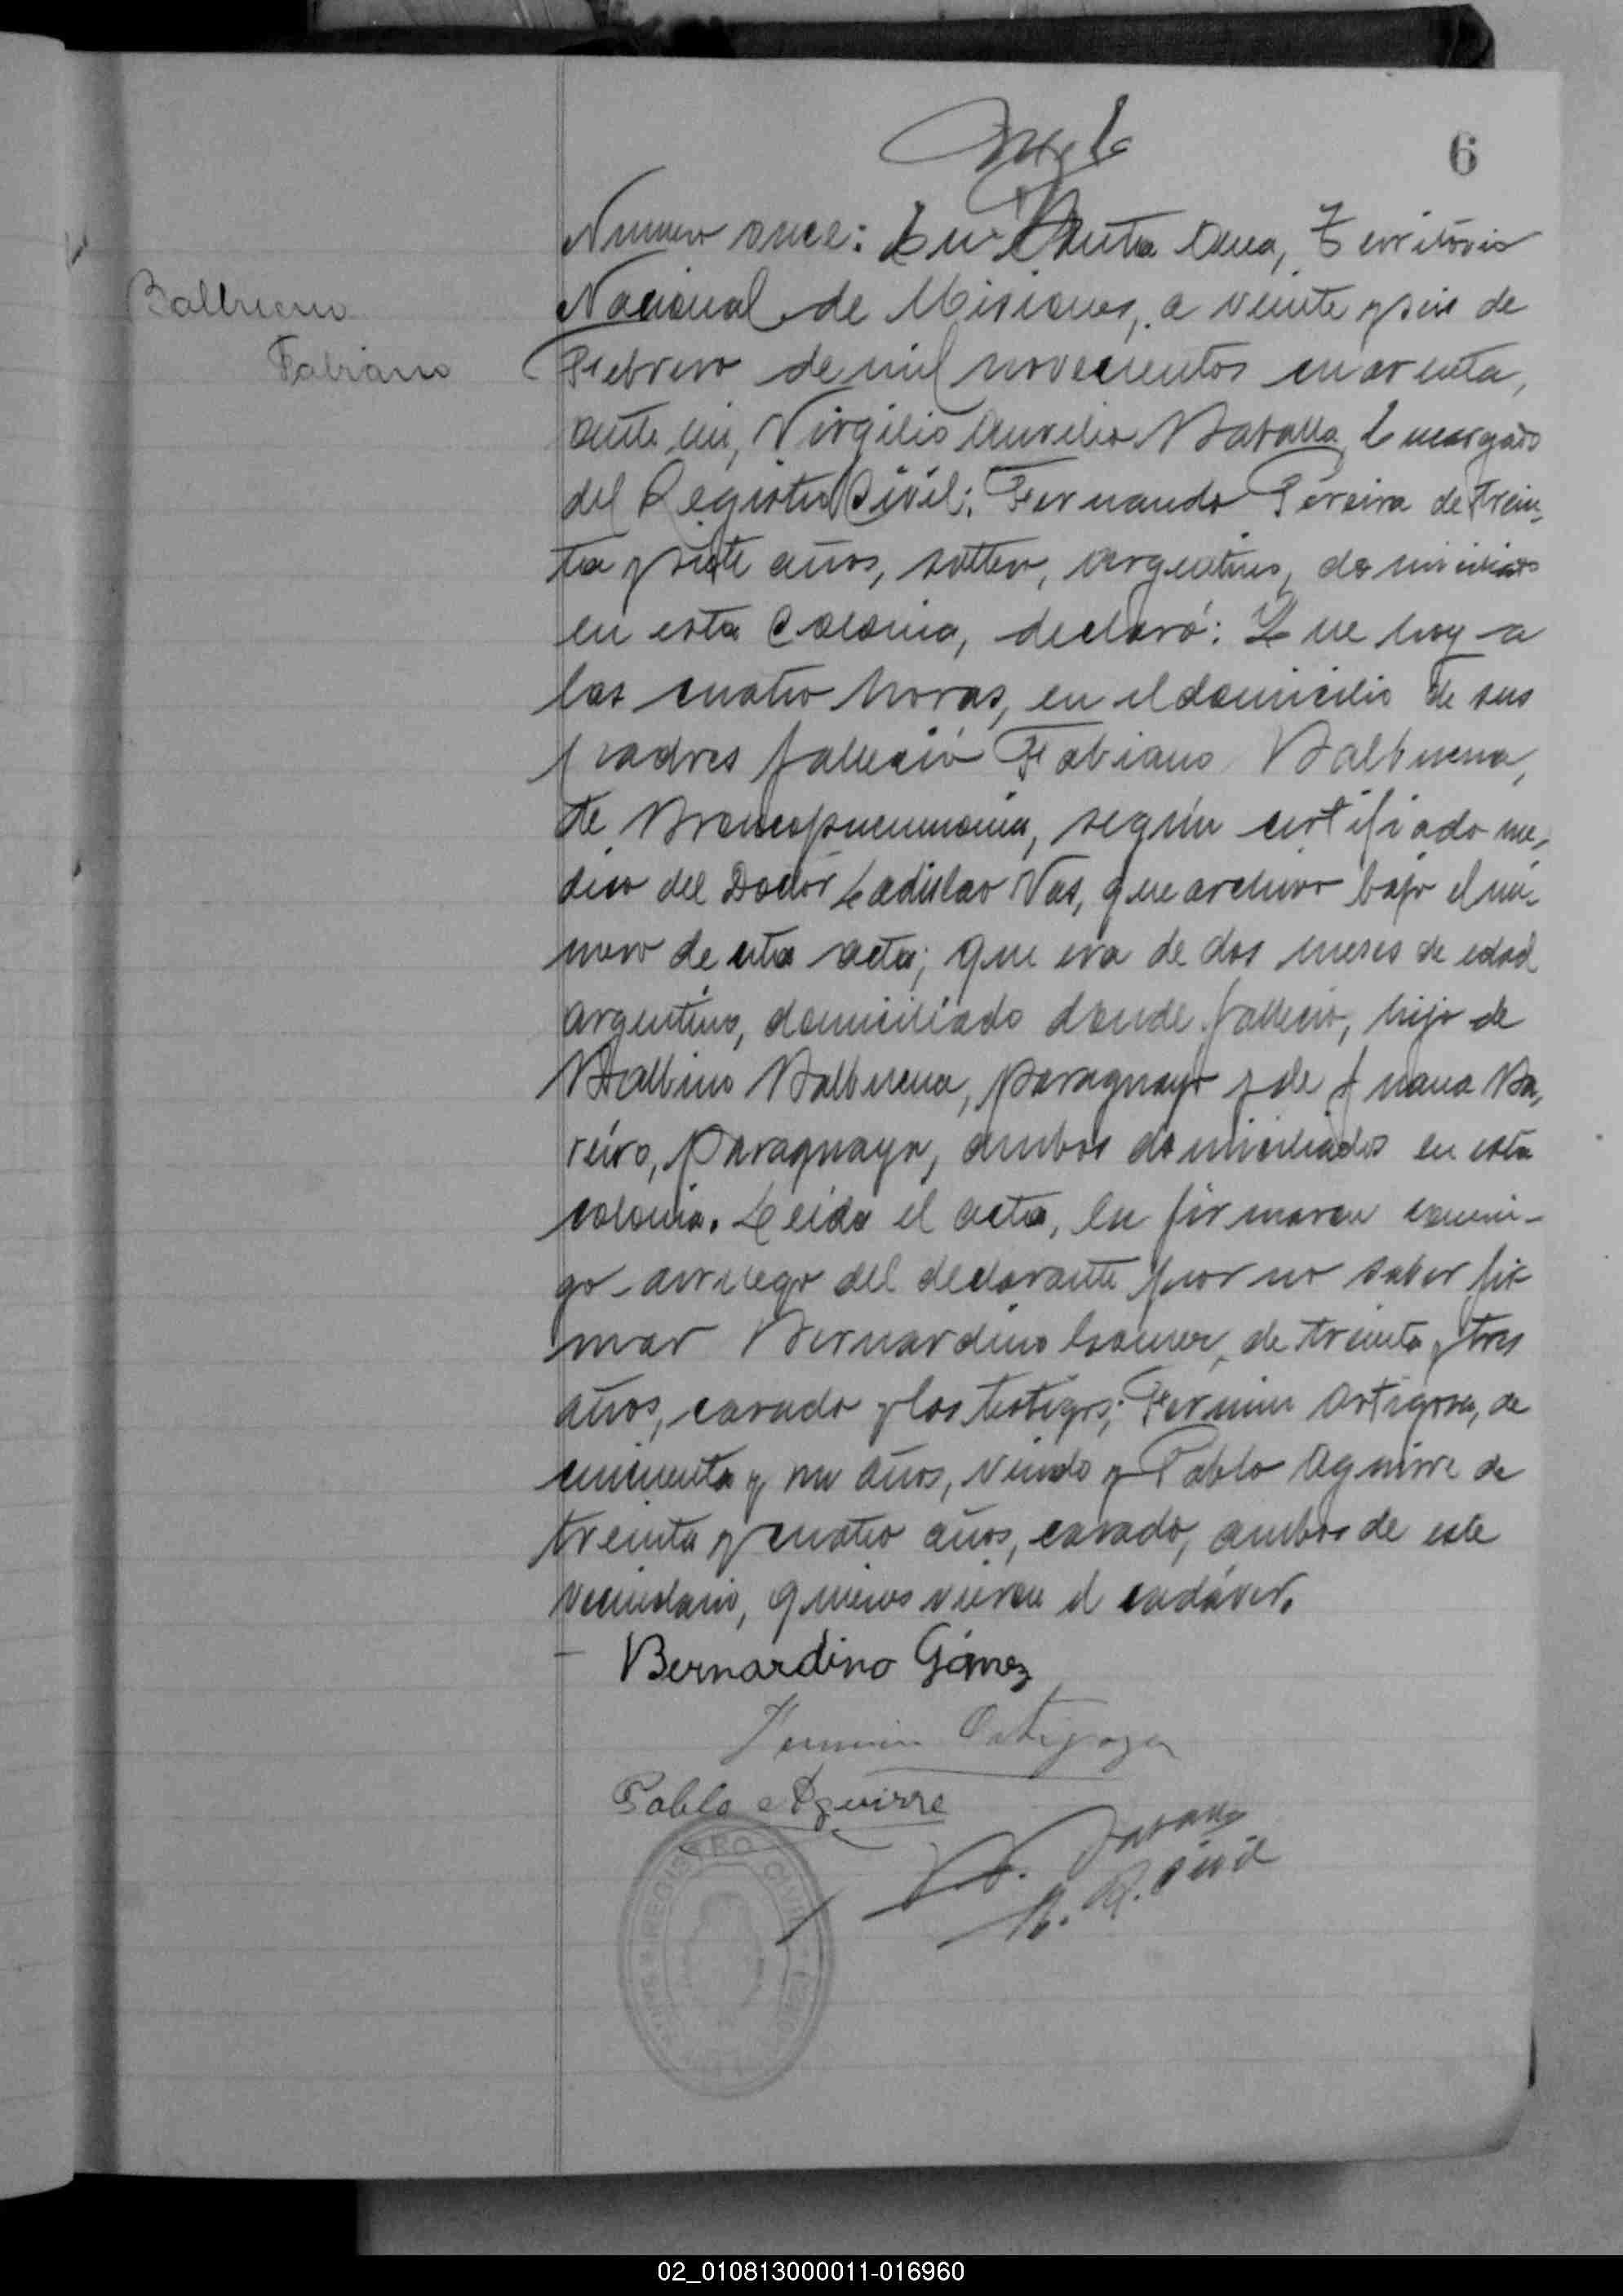 6
Numero once: En Santa Ana, Territorio
Balbuena
Nacional de Misiones, a veinte y seis de
Fabiano
Febrero de mil novecientos cuarenta,
ante mi, Virgilio Aurelio Encargado
del Registro Civil: Fernando Pereira de trein-
ta y siete años, soltero, argentino, domiciliado
en esta Colonia, declaró: Que hoy a
las cuatro horas, en el domicilio de sus
padres falleció Fabiano Balbuena,
de Bronconeumonia, según certificado mé-
dico del Doctor Ladislao Vas, que archivo bajo el nú-
mero de esta acta; que era de dos meses de edad
argentino, domiciliado donde falleció, hijo de
Balbino Balbuena, paraguayo y de Juana Ba-
reiro, paraguaya, ambos domiciliados en esta
colonia. Leida el acta, la firmaron conmi-
go a ruego del declarante por no saber fir
mar Bernardino Gomez, de treinta y tres
años, casado y los testigos; Fermin Ortigoza, de
cincuenta y un años, viudo y Pablo Aguirre de
treinta y cuatro años, casado, ambos de este
vecindario, quienes vieron el cadáver.
Bernardino Gómez
Fermin Ortigoza
Pablo Aguirre
REGISTRO CIVIL
R. Civil
02_010813000011-016960